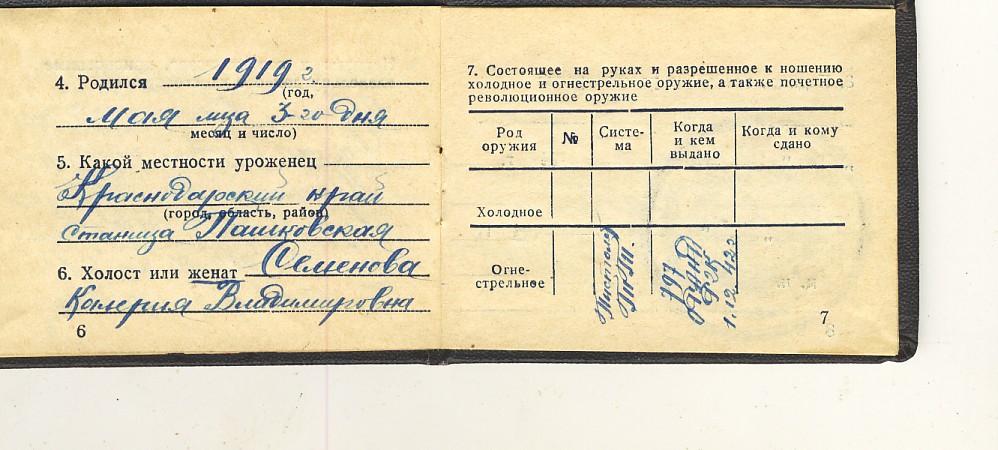 4. Родился 1919 г.
(год,
Мая м-ца 3-го дня
месяц и число)
5. Какой местности уроженец
Краснодарский край
(город, область, район)
станица Пашковская
6. Холост или женат Семенова
Калерия Владимировна
6
7. Состоящее на руках и разрешенное к ношению
холодное и огнестрельное оружие, а также почетное
революционное оружие
Род оружия № Систе-ма Когда и кем выдано Когда и кому сдано
Холодное
Огне-
стрельное
Пистолет
797
1.12.42г
7